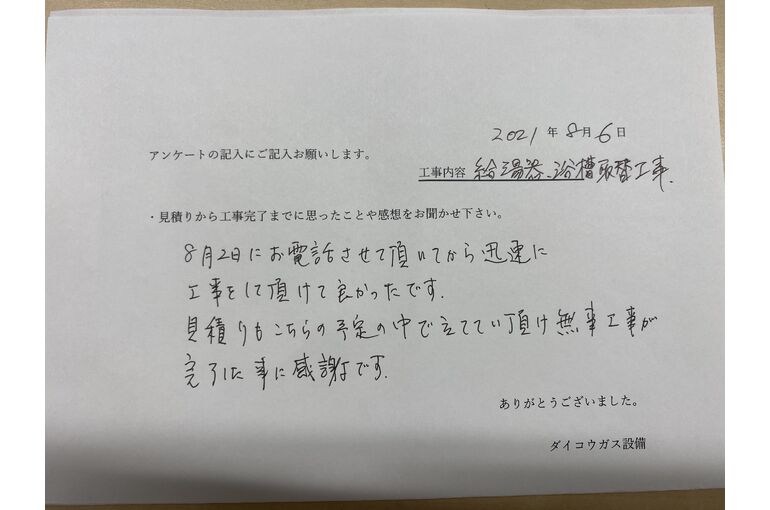 2021年8月6日
アンケートの記入にご記入お願いします。
工事内容 給湯器、浴槽取替工事、
・見積りから工事完了までに思ったことや感想をお聞かせ下さい。
8月2日にお電話させて頂いてから迅速に
工事をして頂けて良かったです。
見積りもこちらの予定の中で立てて頂け無事工事が
完了した事に感謝です。
ありがとうございました。
ダイコウガス設備